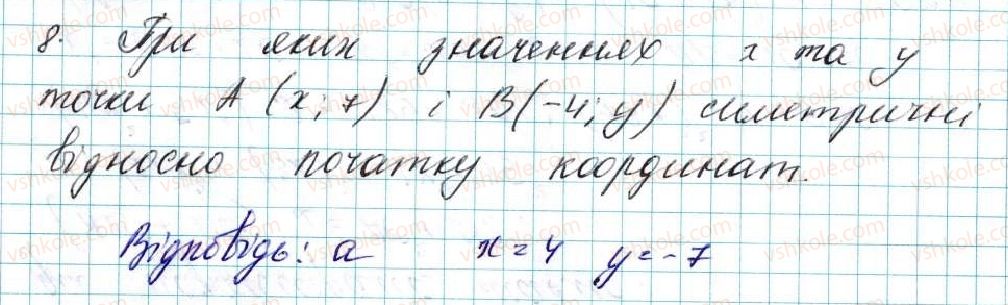 8. При яких значеннях x та y
точки A (x; 7) і B(-4; y) симетричні
відносно початку координат.
Відповідь: а x = 4 y = -7